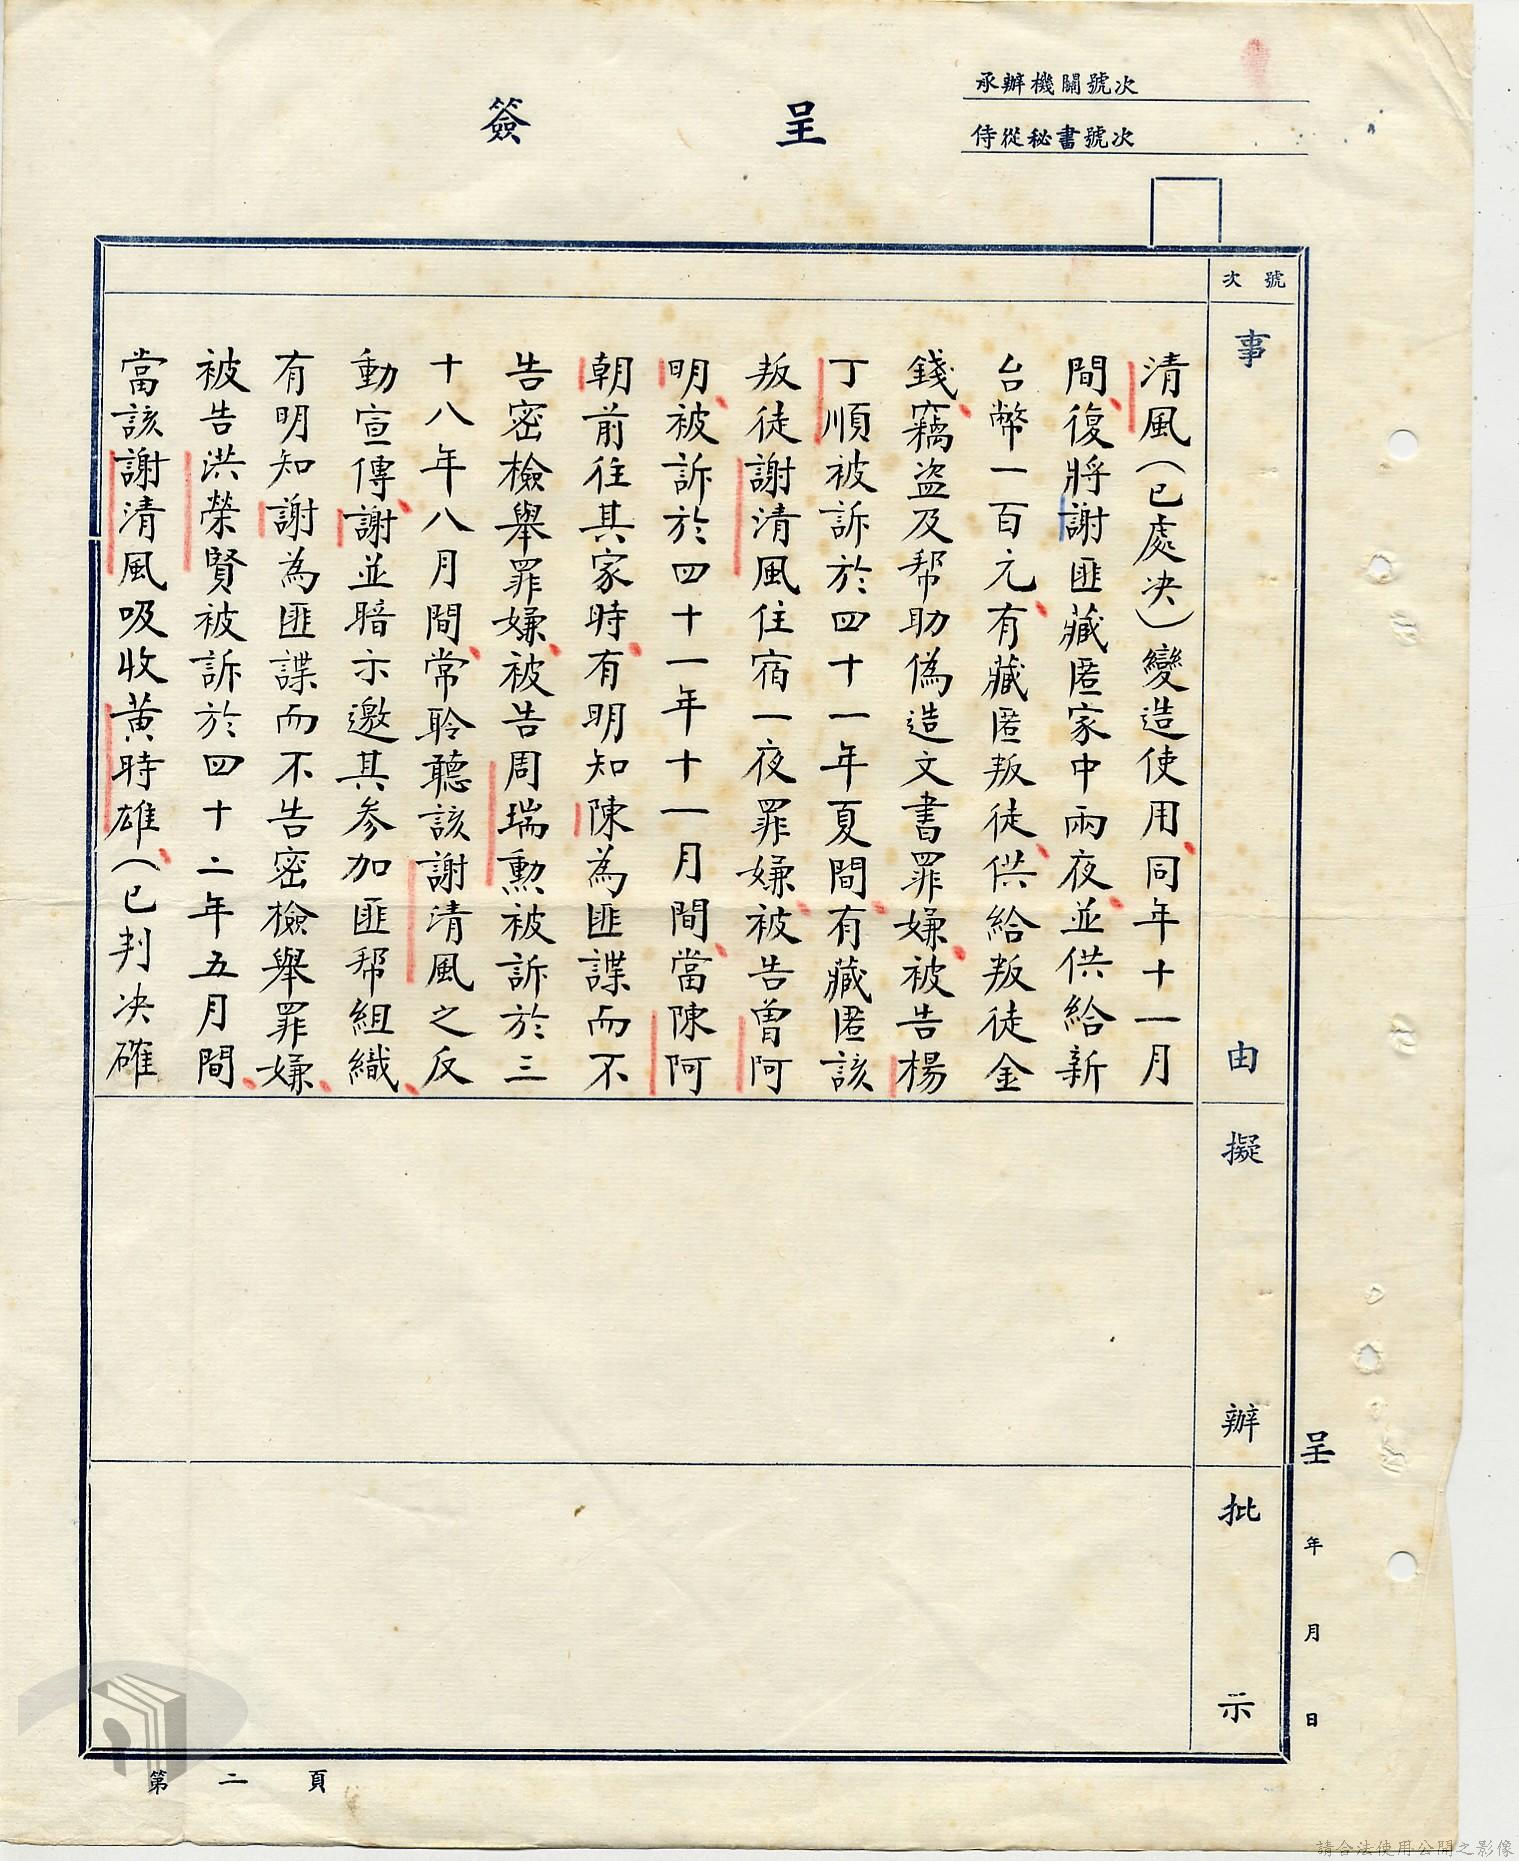 承辦機關號次
侍從秘書號次
簽呈
號次
事由
清風(已處决)變造使用、同年十一月
間、復將謝匪藏匿家中兩夜、並供給新
台幣一百元、有藏匿叛徒、供給叛徒金
錢、竊盜及帮助偽造文書罪嫌、被告楊
丁順被訴於四十一年夏間、有藏匿該
叛徒謝清風住宿一夜罪嫌、被告曾阿
明、被訴於四十一年十一月間、當陳阿
朝前往其家時、有明知陳為匪諜而不
告密檢舉罪嫌、被告周瑞勲被訴於三
十八年八月間、常聆聽該謝清風之反
動宣傳、謝並暗示邀其参加匪帮組織、
有明知謝為匪諜而不告密檢舉罪嫌、
被告洪榮賢被訴於四十二年五月間、
當該謝清風吸收黃時雄、(已判决確
擬辦
批示
呈
年
月
日
第二頁
請合法使用公開之影像